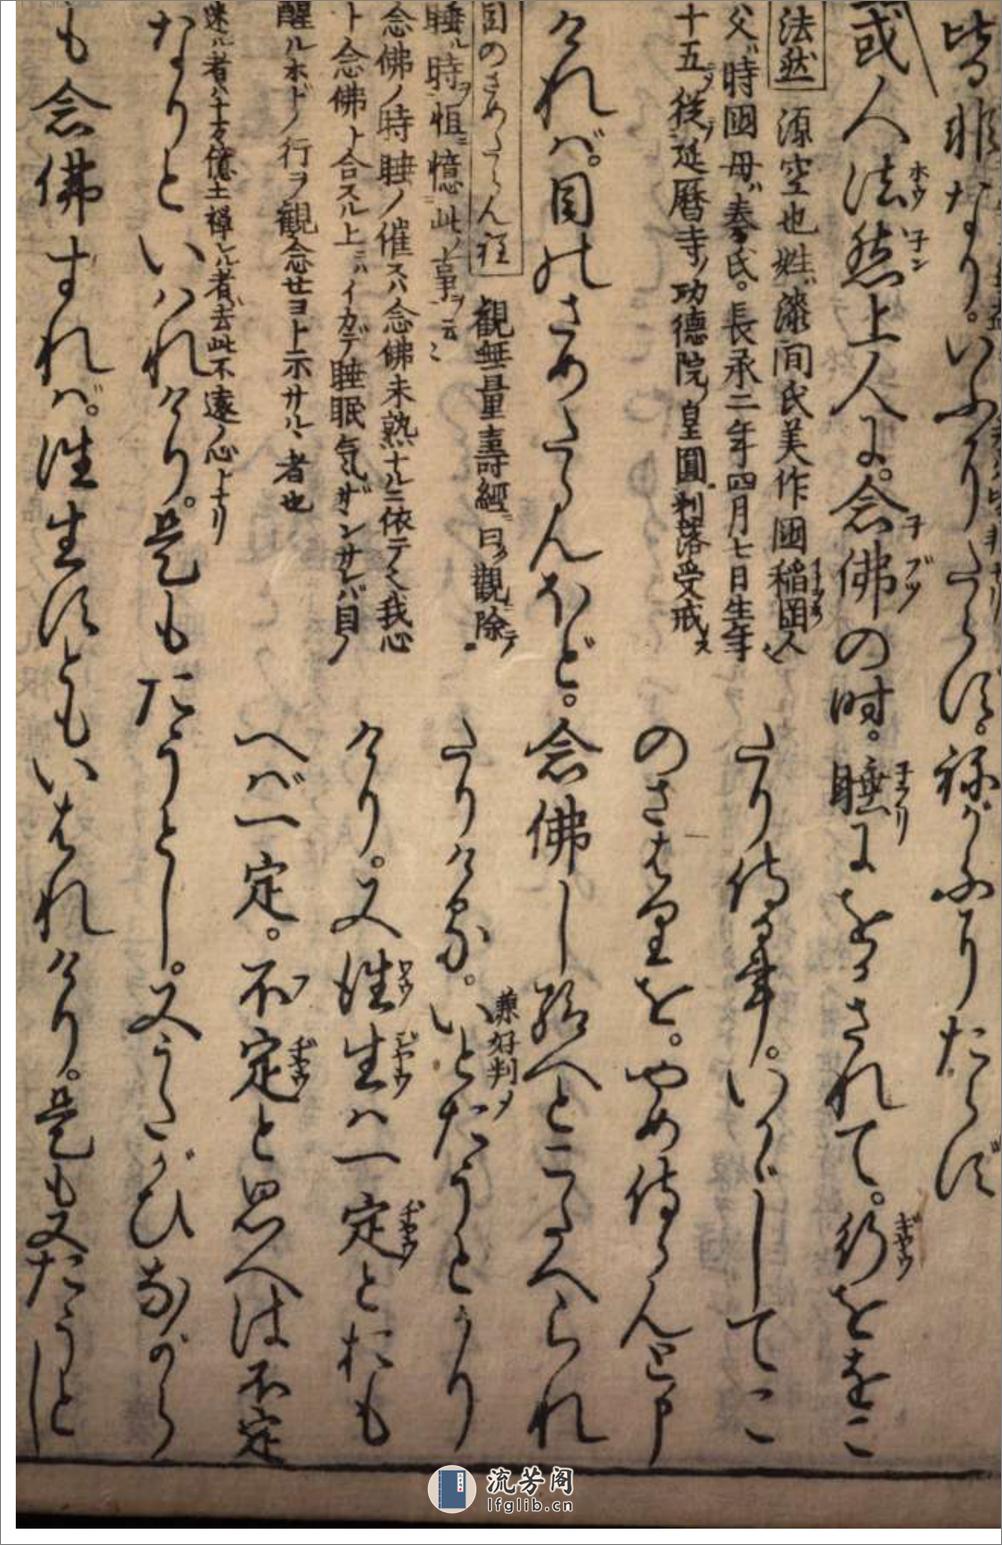 皆非なり。いふにたらず。ねがふにたらず
或人法然上人に。念佛の時。睡にをかされて。行ををこ
法然 源空也姓漆間氏美作國稲岡人
父ハ時國母ハ秦氏。長承二年四月七日生年
十五ニ乄從延暦寺ノ功徳院ノ皇圓剃落受戒ス
たり侍る事。いかゞしてこ
のさはりを。やめ侍らんと申
ければ。目のさめたらんほど。念佛し給へとこたへられ
目のさめたらん程 觀無量壽經ニ曰ク觀除テ
睡ル時ヲ恒ニ憶此ノ事ヲ云々
念佛ノ時睡ノ催スハ念佛未熟ナルニ依テ也我心
ト念佛ト合スル上ニハイカデ睡眠気ザヽンサレバ目ノ
醒ルホドノ行ヲ観念セヨト示サルヽ者也
たりける。いとたうとかり
兼好判ノ
けり。又往生ハ一定とおも
へバ一定。不定と思へは不定
迷ル者ハ十万億土禅ル者ハ去此不遠ノ心
なりといハれけり。是もたうとし。又うたがひながら
も念佛すれば。往生すともいはれけり。是も又たうとし
流芳阁
lfglib.cn